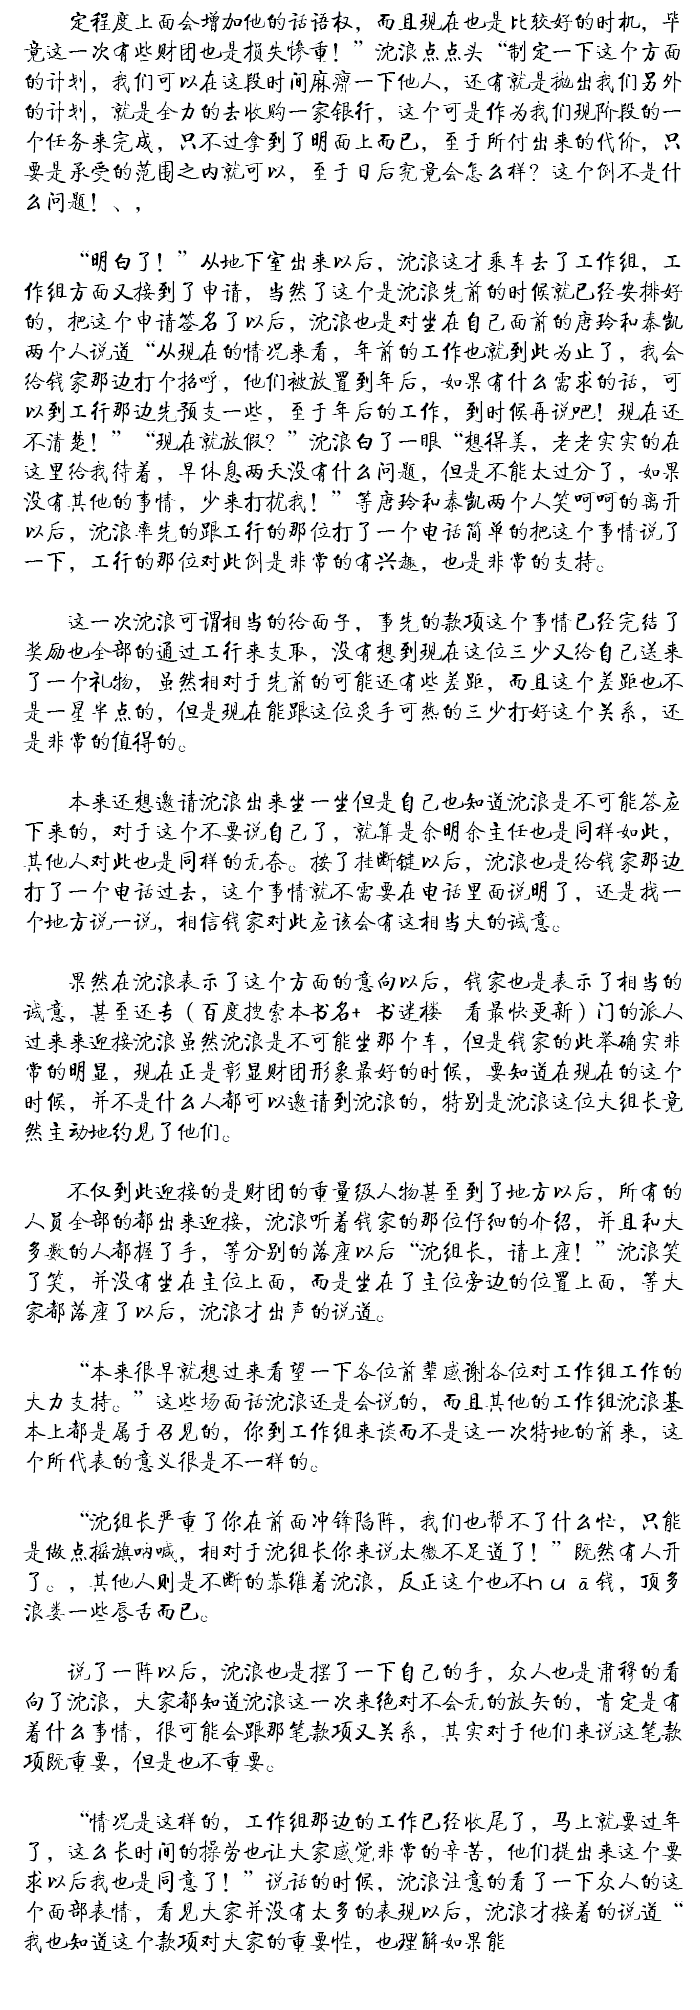 定程度上面会增加他的话语权，而且现在也是比较好的时机，毕
竟这一次有些财团也是损失惨重！”沈浪点点头“制定一下这个方面
的计划，我们可以在这段时间麻痹一下他人，还有就是抛出我们另外
的计划，就是全力的去收购一家银行，这个可是作为我们现阶段的一
个任务来完成，只不过拿到了明面上而已，至于所付出来的代价，只
要是承受的范围之内就可以，至于日后究竟会怎么样？这个倒不是什
么问题！、，
“明白了！”从地下室出来以后，沈浪这才乘车去了工作组，工
作组方面又接到了申请，当然了这个是沈浪先前的时候就已经安排好
的，把这个申请签名了以后，沈浪也是对坐在自己面前的唐玲和秦凯
两个人说道“从现在的情况来看，年前的工作也就到此为止了，我会
给钱家那边打个招呼，他们被放置到年后，如果有什么需求的话，可
以到工行那边先预支一些，至于年后的工作，到时候再说吧！现在还
不清楚！”“现在就放假？”沈浪白了一眼“想得美，老老实实的在
这里给我待着，早休息两天没有什么问题，但是不能太过分了，如果
没有其他的事情，少来打扰我！”等唐玲和秦凯两个人笑呵呵的离开
以后，沈浪率先的跟工行的那位打了一个电话简单的把这个事情说了
一下，工行的那位对此倒是非常的有兴趣，也是非常的支持。
这一次沈浪可谓相当的给面子，事先的款项这个事情已经完结了
奖励也全部的通过工行来支取，没有想到现在这位三少又给自己送来
了一个礼物，虽然相对于先前的可能还有些差距，而且这个差距也不
是一星半点的，但是现在能跟这位炙手可热的三少打好这个关系，还
是非常的值得的。
本来还想邀请沈浪出来坐一坐但是自己也知道沈浪是不可能答应
下来的，对于这个不要说自己了，就算是余明余主任也是同样如此，
其他人对此也是同样的无奈。按了挂断键以后，沈浪也是给钱家那边
打了一个电话过去，这个事情就不需要在电话里面说明了，还是找一
个地方说一说，相信钱家对此应该会有这相当大的诚意。
果然在沈浪表示了这个方面的意向以后，钱家也是表示了相当的
诚意，甚至还专（百度搜索本书名+ 书迷楼 看最快更新）门的派人
过来来迎接沈浪虽然沈浪是不可能坐那个车，但是钱家的此举确实非
常的明显，现在正是彰显财团形象最好的时候，要知道在现在的这个
时候，并不是什么人都可以邀请到沈浪的，特别是沈浪这位大组长竟
然主动地约见了他们。
不仅到此迎接的是财团的重量级人物甚至到了地方以后，所有的
人员全部的都出来迎接，沈浪听着钱家的那位仔细的介绍，并且和大
多数的人都握了手，等分别的落座以后“沈组长，请上座！”沈浪笑
了笑，并没有坐在主位上面，而是坐在了主位旁边的位置上面，等大
家都落座了以后，沈浪才出声的说道。
“本来很早就想过来看望一下各位前辈感谢各位对工作组工作的
大力支持。”这些场面话沈浪还是会说的，而且其他的工作组沈浪基
本上都是属于召见的，你到工作组来谈而不是这一次特地的前来，这
个所代表的意义很是不一样的。
“沈组长严重了你在前面冲锋陷阵，我们也帮不了什么忙，只能
是做点摇旗呐喊，相对于沈组长你来说太微不足道了！”既然有人开
了。，其他人则是不断的恭维着沈浪，反正这个也不huā钱，顶多
浪费一些唇舌而已。
说了一阵以后，沈浪也是摆了一下自己的手，众人也是肃穆的看
向了沈浪，大家都知道沈浪这一次来绝对不会无的放矢的，肯定是有
着什么事情，很可能会跟那笔款项又关系，其实对于他们来说这笔款
项既重要，但是也不重要。
“情况是这样的，工作组那边的工作已经收尾了，马上就要过年
了，这么长时间的操劳也让大家感觉非常的辛苦，他们提出来这个要
求以后我也是同意了！”说话的时候，沈浪注意的看了一下众人的这
个面部表情，看见大家并没有太多的表现以后，沈浪才接着的说道“
我也知道这个款项对大家的重要性，也理解如果能